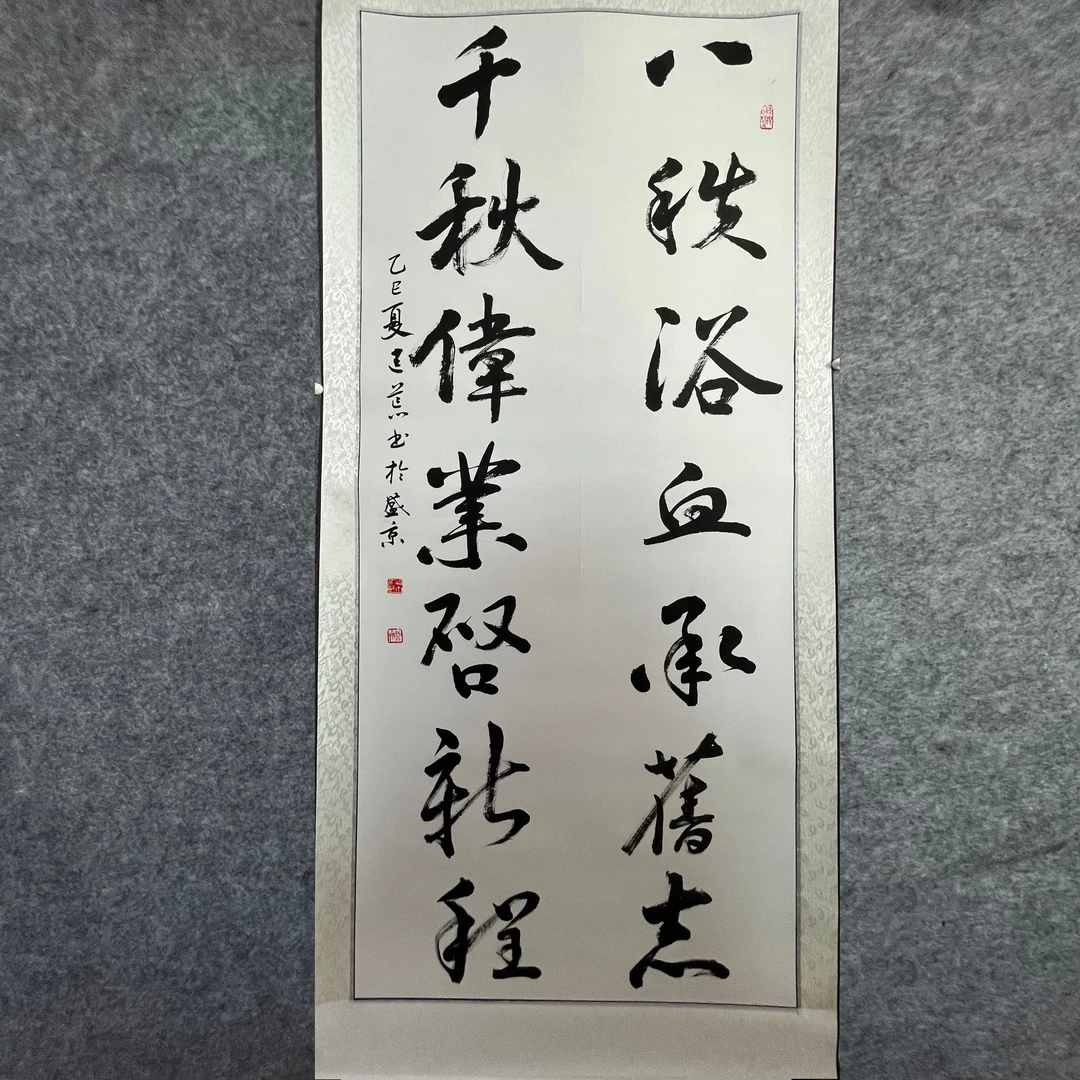 八秩浴血承舊志
千秋偉業啓新程
乙巳夏建燕书於盛京